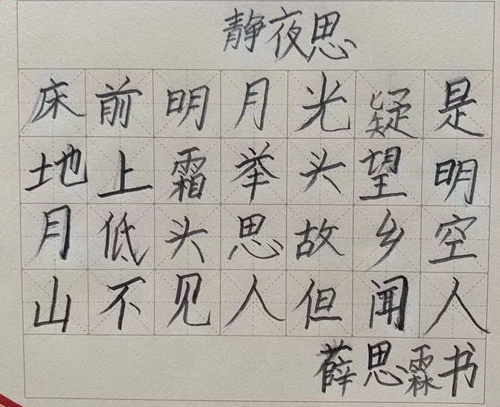 静夜思
床前明月光疑是
地上霜举头望明
月低头思故乡空
山不见人但闻人
薛思霖书